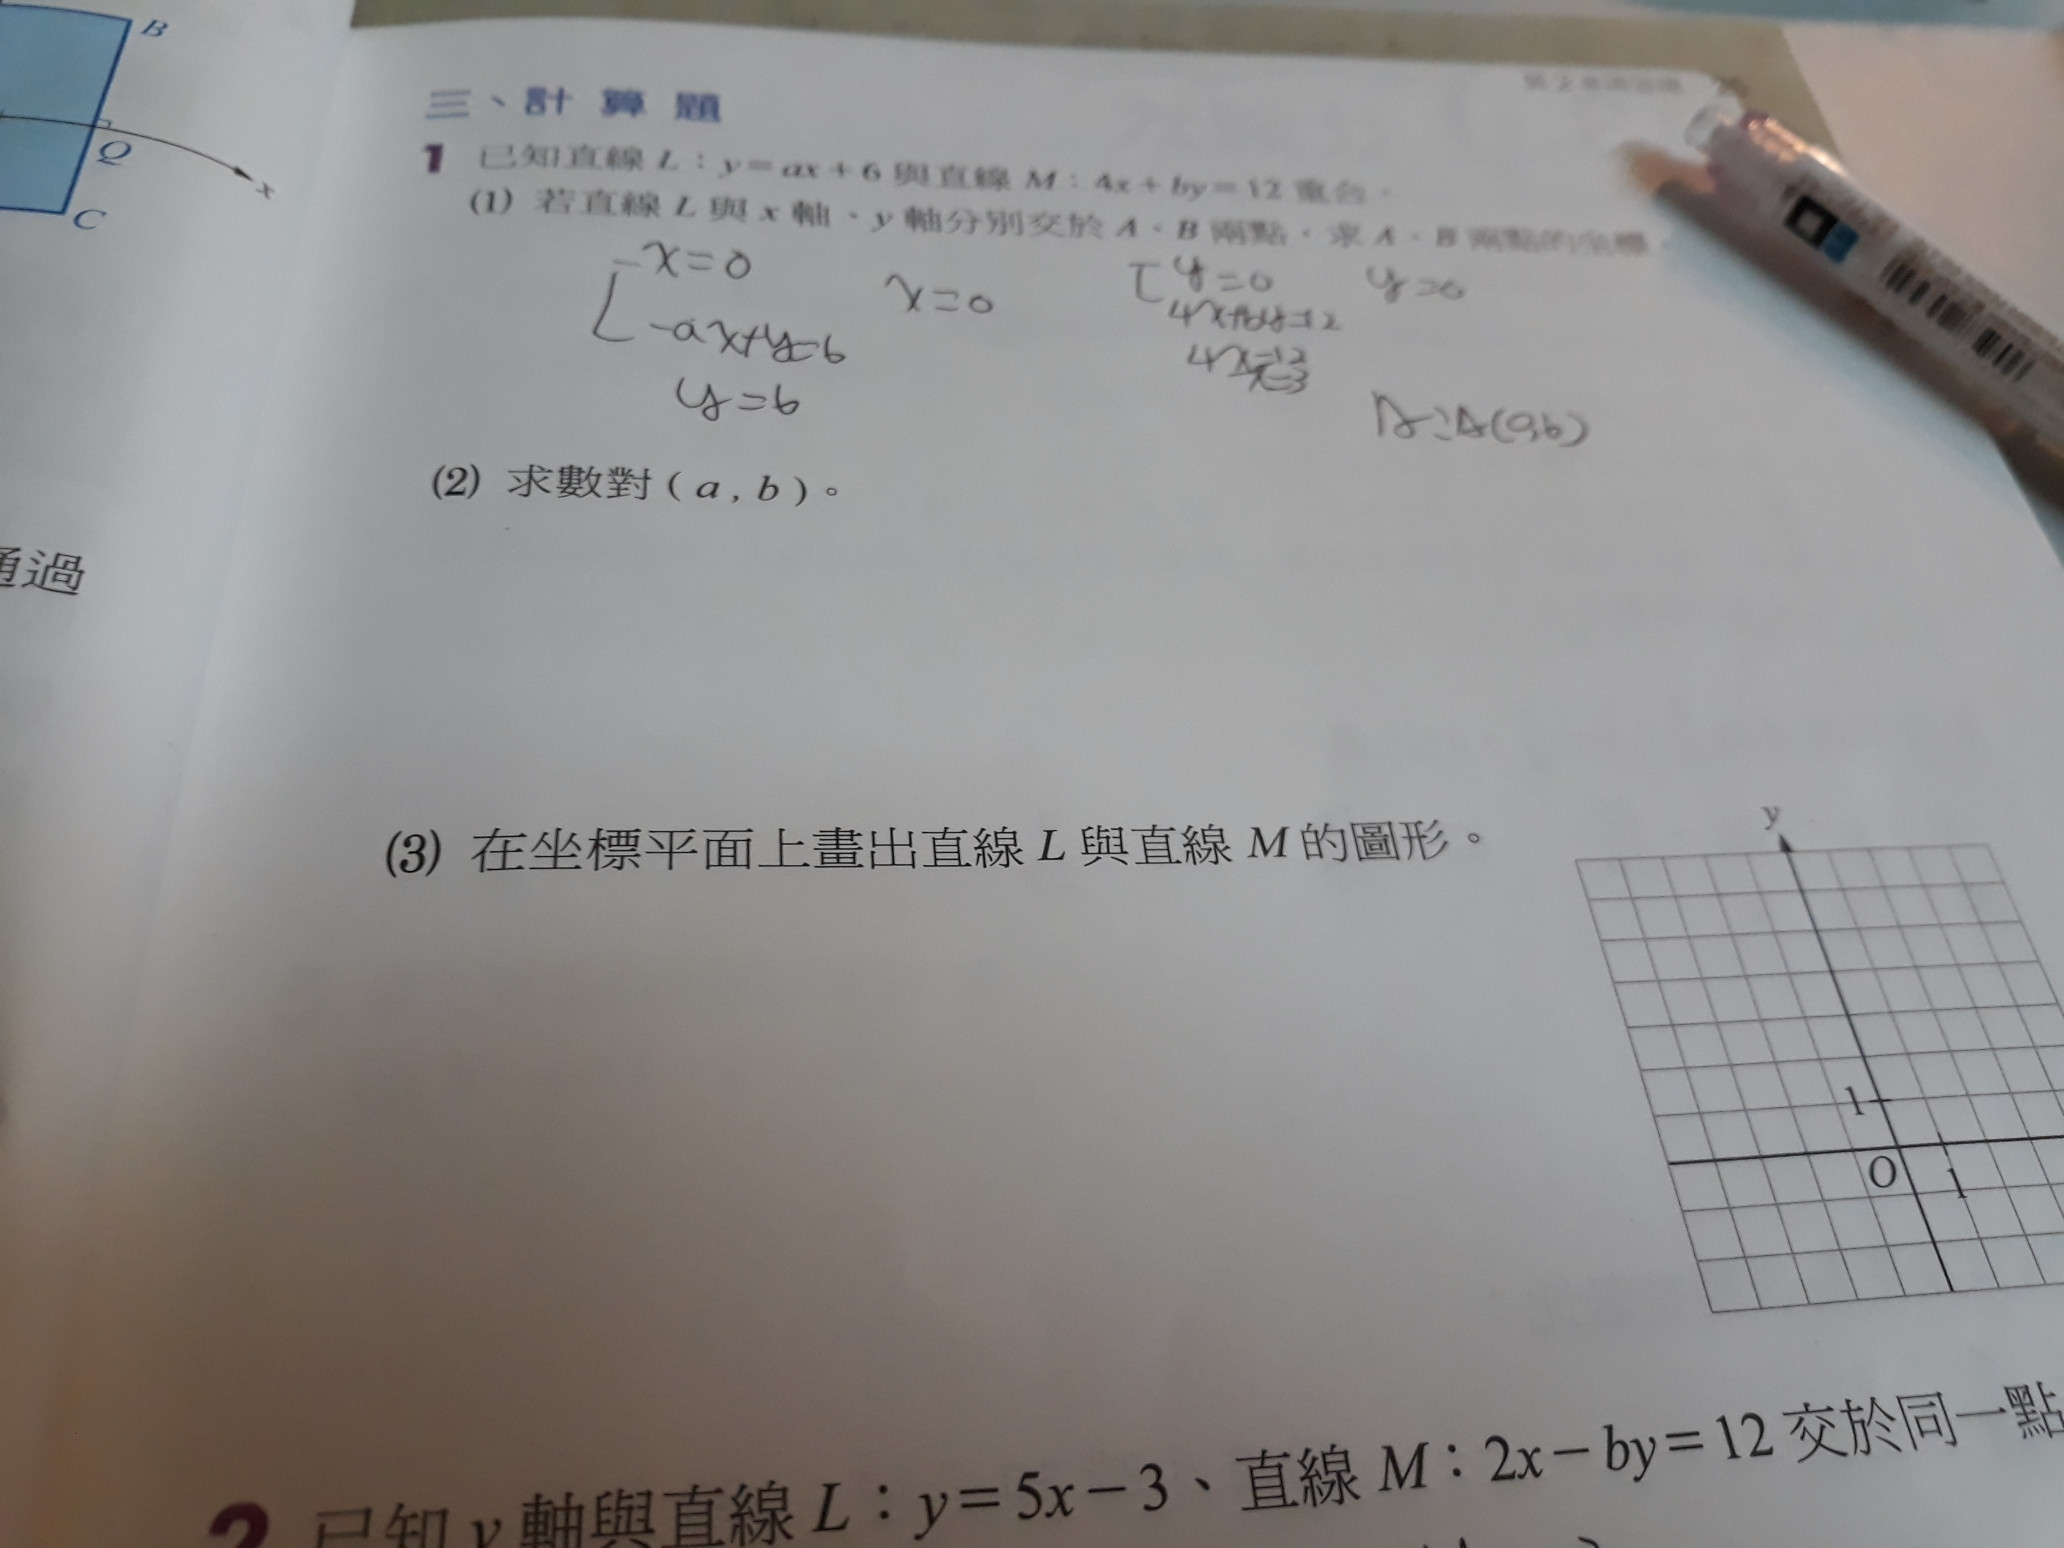 B
Q
x
C
通過
三、計算題
1 已知直線 L：y=ax+6 與直線 M：4x+by=12 重合。
(1) 若直線 L 與 x 軸、y 軸分別交於 A、B 兩點，求 A、B 兩點的坐標。
x=0
-ax+y=6
y=6
x=0
y=0
4x+by=12
4x=12
x=3
y=0
A(0,6)
(2) 求數對 ( a , b )。
(3) 在坐標平面上畫出直線 L 與直線 M 的圖形。
y
1
O
1
2 已知 y 軸與直線 L：y=5x-3、直線 M：2x-by=12 交於同一點